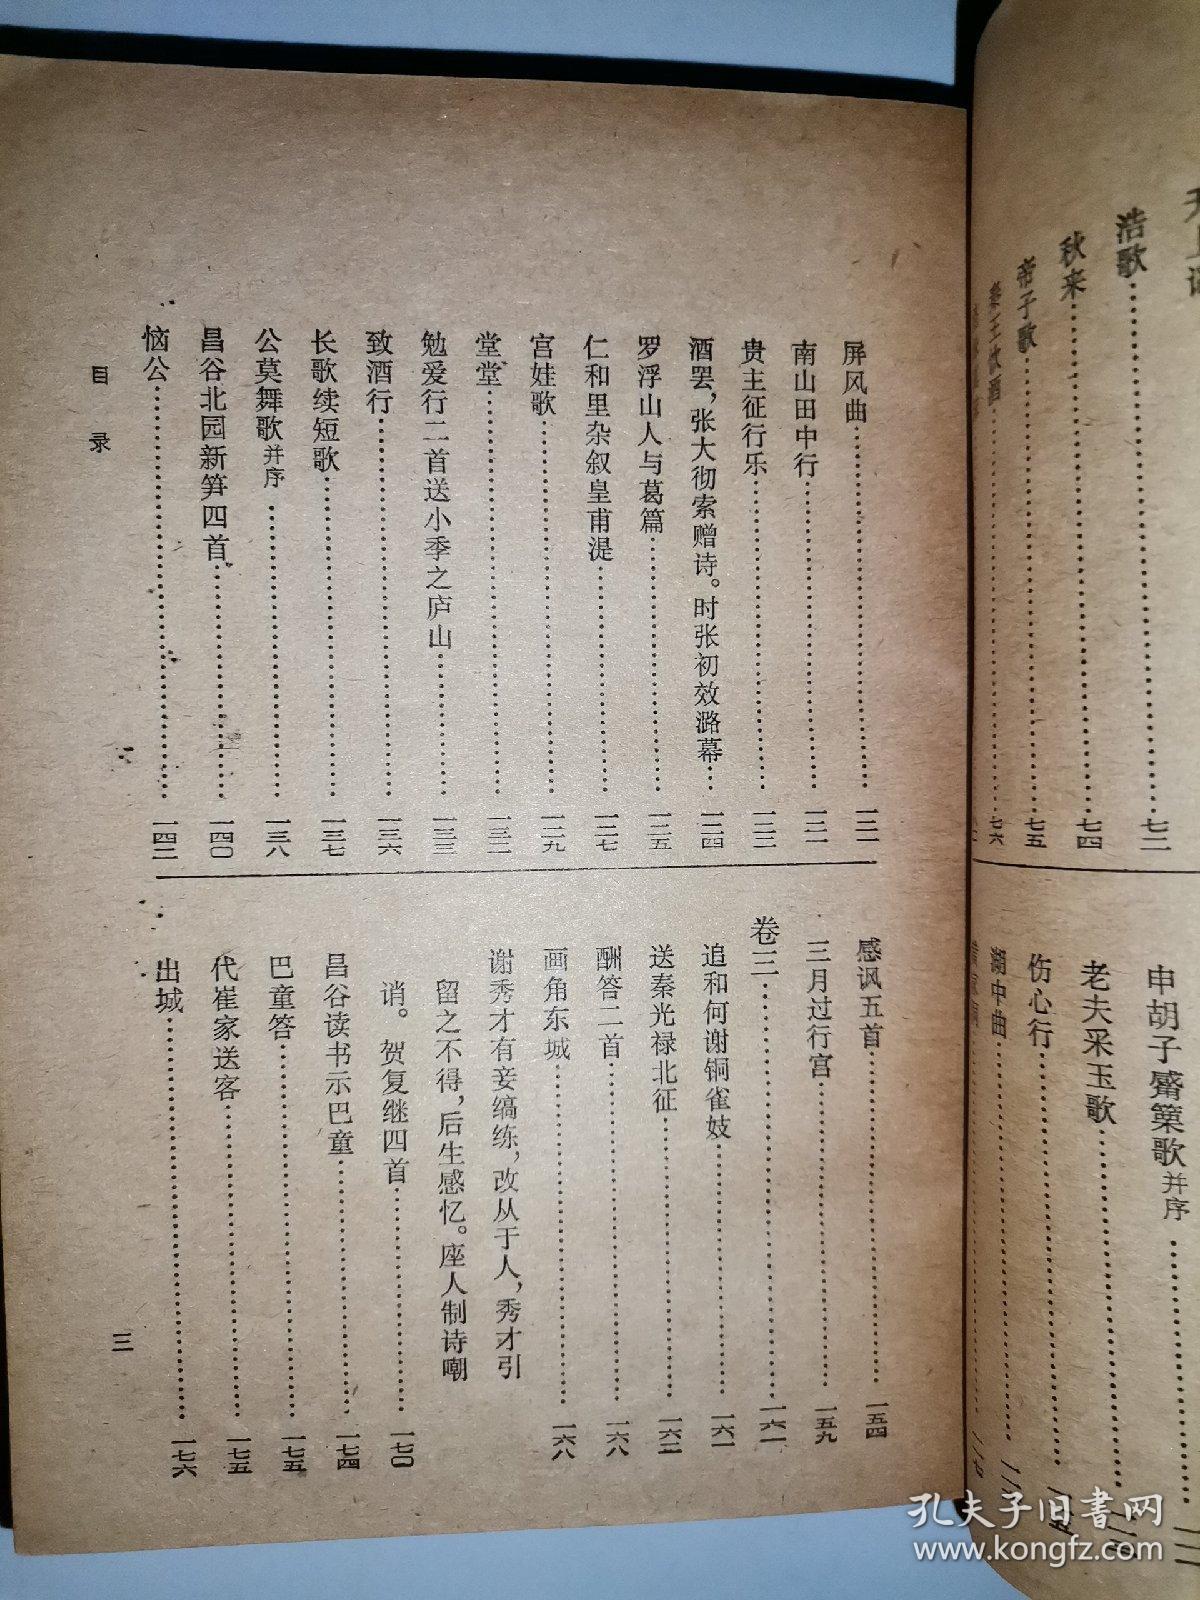 天上谣
浩歌……七二
秋来……七四
帝子歌……七五
秦王饮酒……七六
申胡子觱篥歌并序
老夫采玉歌
伤心行
湖中曲
屏风曲……一二一
南山田中行……一二二
贵主征行乐……一二三
酒罢,张大彻索赠诗。时张初效潞幕……一二四
罗浮山人与葛篇……一二五
仁和里杂叙皇甫湜……一二七
宫娃歌……一二九
堂堂……一三二
勉爱行二首送小季之庐山……一三三
致酒行……一三六
长歌续短歌……一三七
公莫舞歌并序……一三八
昌谷北园新笋四首……一四〇
恼公……一四二
感讽五首……一五四
三月过行宫……一五九
卷三……一六一
追和何谢铜雀妓……一六一
送秦光禄北征……一六二
酬答二首……一六八
画角东城……一六八
谢秀才有妾缟练,改从于人,秀才引
留之不得,后生感忆。座人制诗嘲
诮。贺复继四首……一七〇
昌谷读书示巴童……一七四
巴童答……一七五
代崔家送客……一七五
出城……一七六
目录
三
孔夫子旧书网
www.kongfz.com